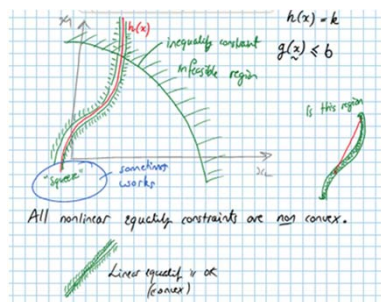 x1
h(x)
h(x) = k
inequality constraint
g(x) ≤ b
infeasible region
Is this region
"squeeze"
sometimes
works
x2
All nonlinear equality constraints are non convex.
Linear equality is ok
(convex)